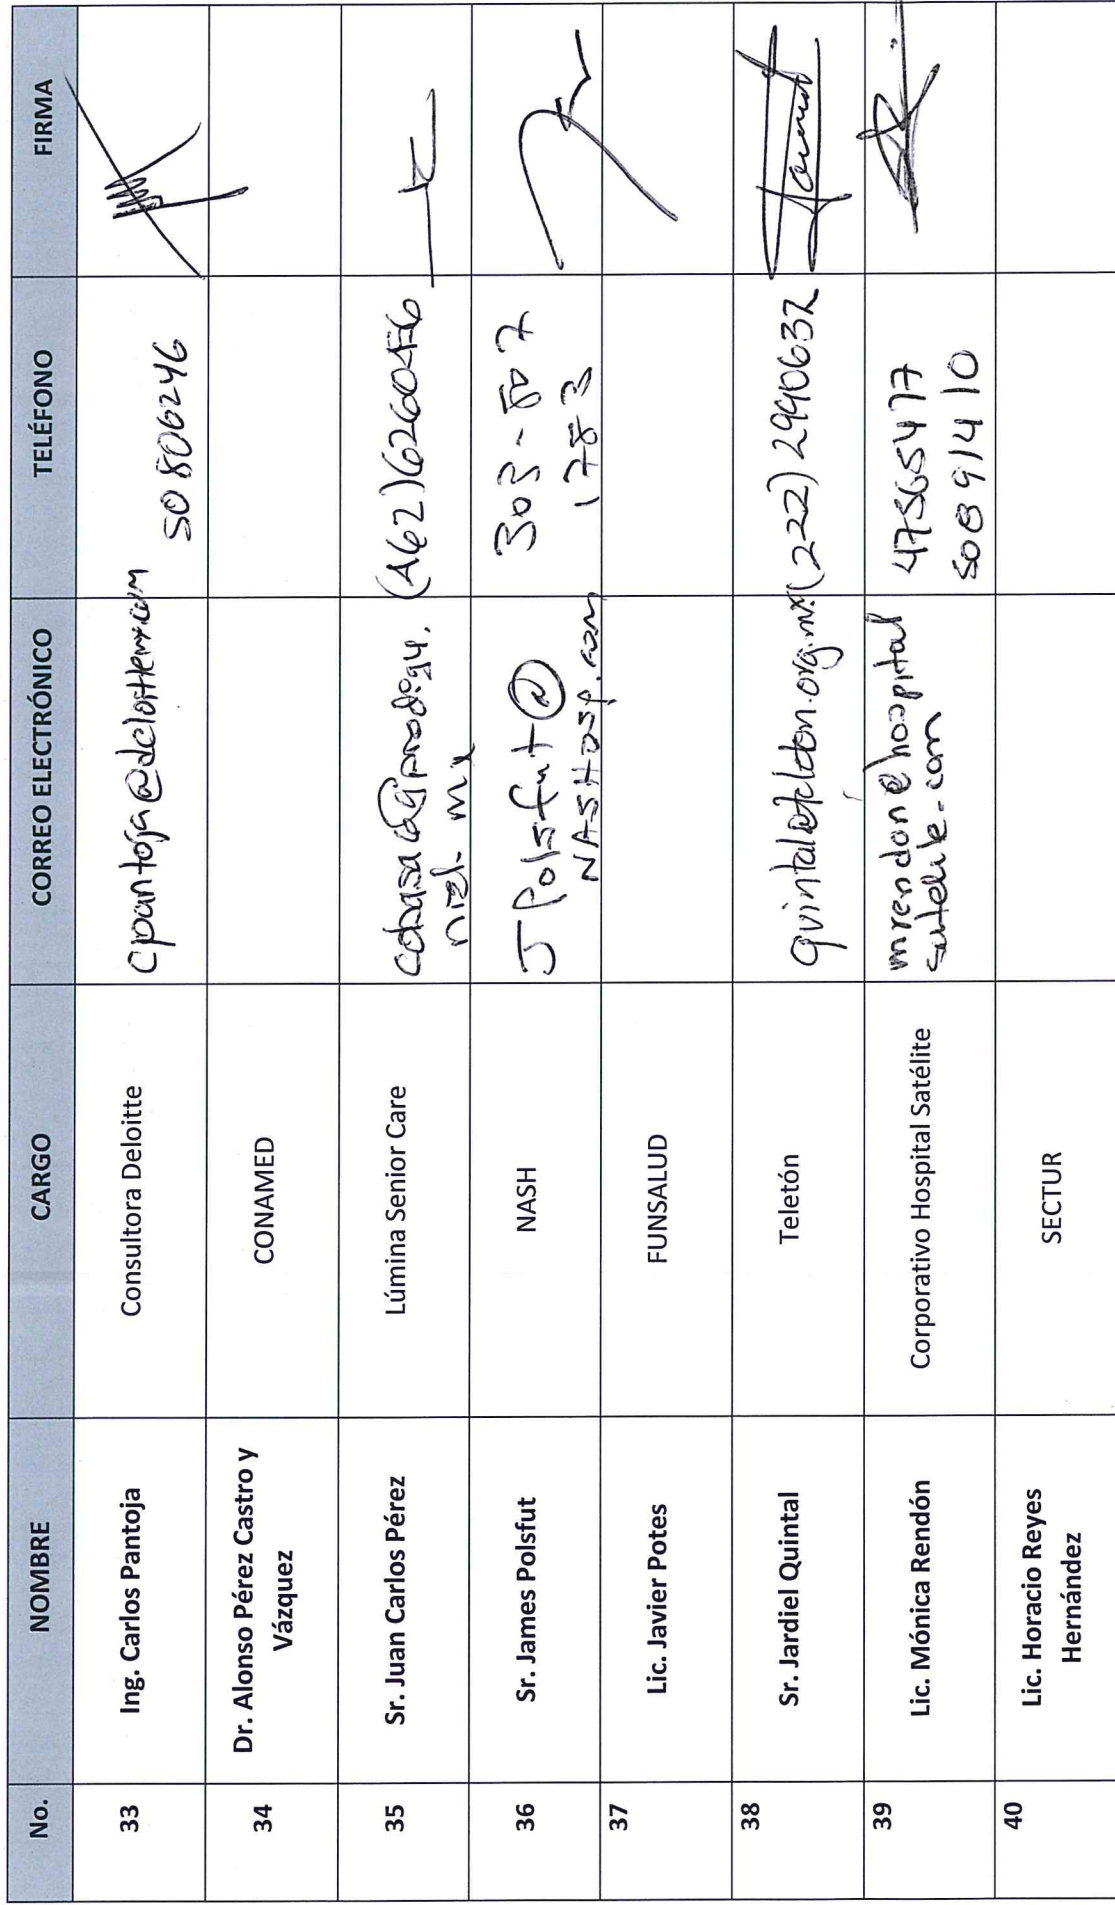 No. NOMBRE CARGO CORREO ELECTRÓNICO TELÉFONO FIRMA
33 Ing. Carlos Pantoja Consultora Deloitte cpantoja@deloittemx.com 50806246
34 Dr. Alonso Pérez Castro y
Vázquez
CONAMED
35 Sr. Juan Carlos Pérez Lúmina Senior Care
niel. mx
36 Sr. James Polsfut NASH JPolsfut@
NASHosp.com
303-807
1783
37 Lic. Javier Potes FUNSALUD
38 Sr. Jardiel Quintal Teletón quintal@teleton.org.mx (222) 2990632
39 Lic. Mónica Rendón Corporativo Hospital Satélite mrendon@hospital
satelite.com
47565477
50891410
40 Lic. Horacio Reyes
Hernández
SECTUR